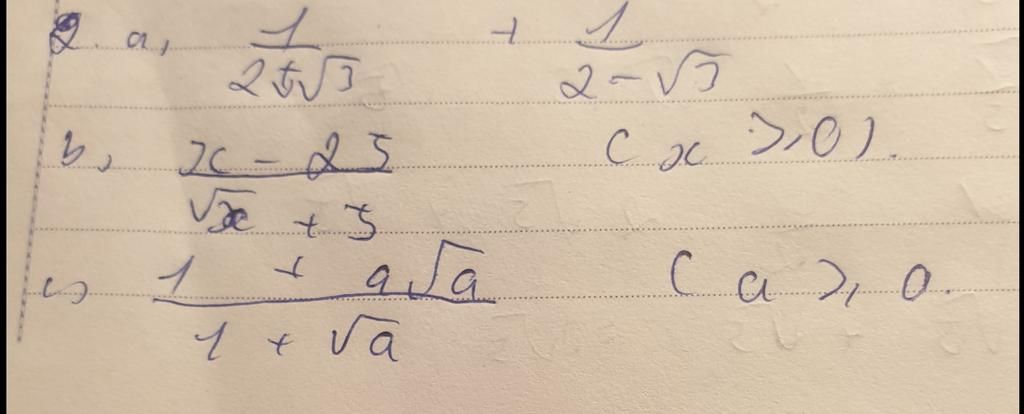 2. a, 1/(2+√3) + 1/(2-√3)
b, (x - 25)/(√x + 5) (x ≥ 0).
c, (1 + a√a)/(1 + √a) (a ≥ 0.